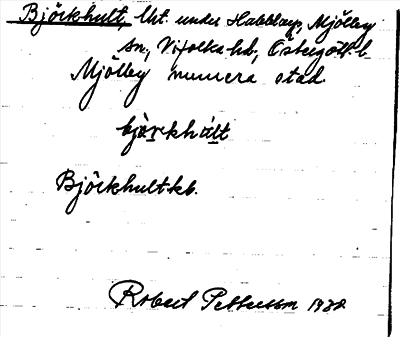 Björkhult, lht. under Hableberg, Mjölby
sn., Vifolka hd., Östergötl. l.
Mjölby numera stad
bjö̀rkhúlt
Björkhult kb.
Robert Pettersson 1938